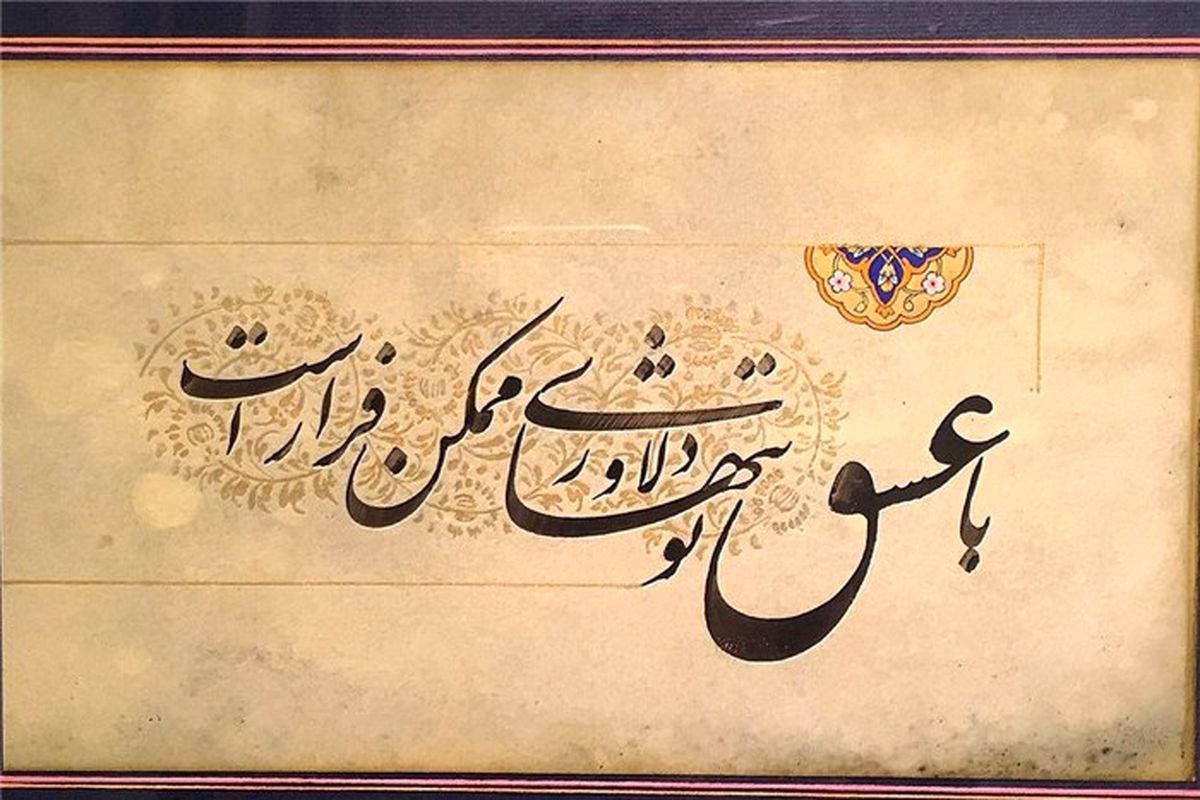 با عشق تو تنها دلاوری ممکن فرار است